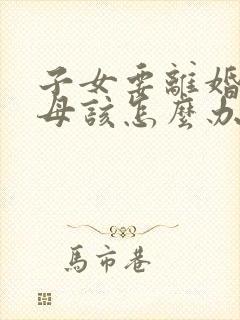 子女要離婚
母該怎麼办
馬市巷